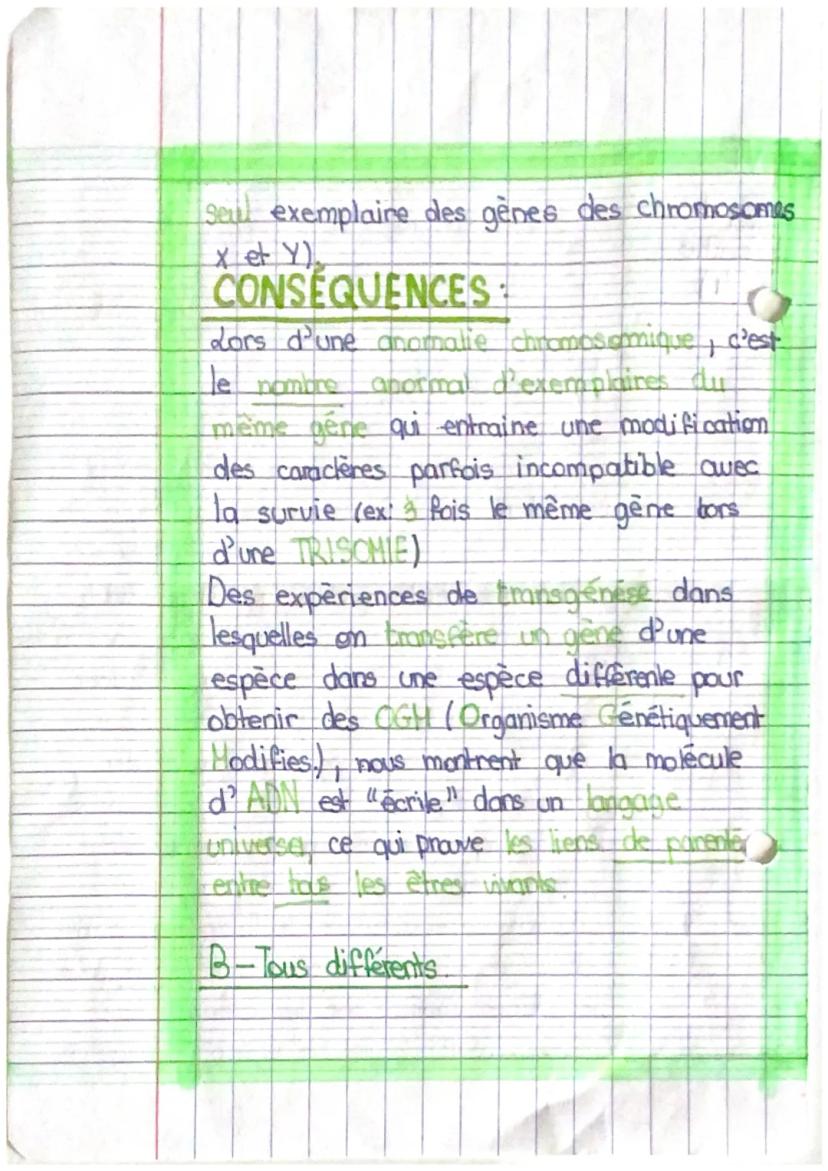 seul exemplaire des gènes des chromosomes
X et Y).
CONSÉQUENCES :
Lors d'une anomalie chromosomique, c'est
le nombre anormal d'exemplaires du
même gène qui entraine une modification
des caractères parfois incompatible avec
la survie (ex: 3 fois le même gène lors
d'une TRISOMIE)
Des expèriences de transgénèse dans
lesquelles on transfère un gène d'une
espèce dans une espèce différente pour
obtenir des OGM (Organisme Génétiquement
Modifies.), nous montrent que la molécule
d'ADN est "écrite" dans un langage
universel, ce qui prouve les liens de parenté
entre tous les êtres vivants.
B - Tous différents.